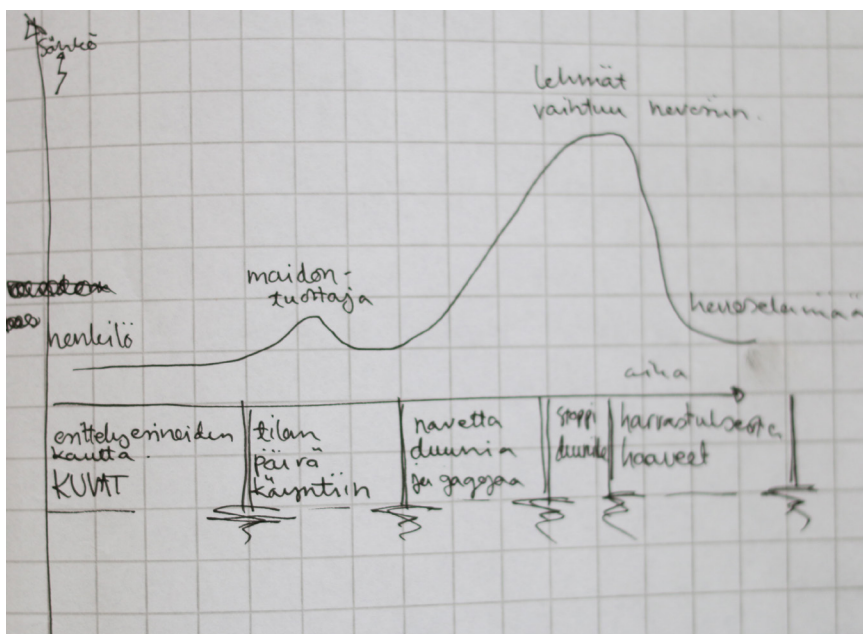 Sähkö
lehmät
vaihtuu hevosiin.
maidon-
tuottaja
henkilö
hevoselämää
aika
esittely esineiden
kautta
KUVAT
tilan
päivä
käyntiin
navetta
duunia
ja gagejaa
stoppi
duunille
harrastuksesta
haaveet